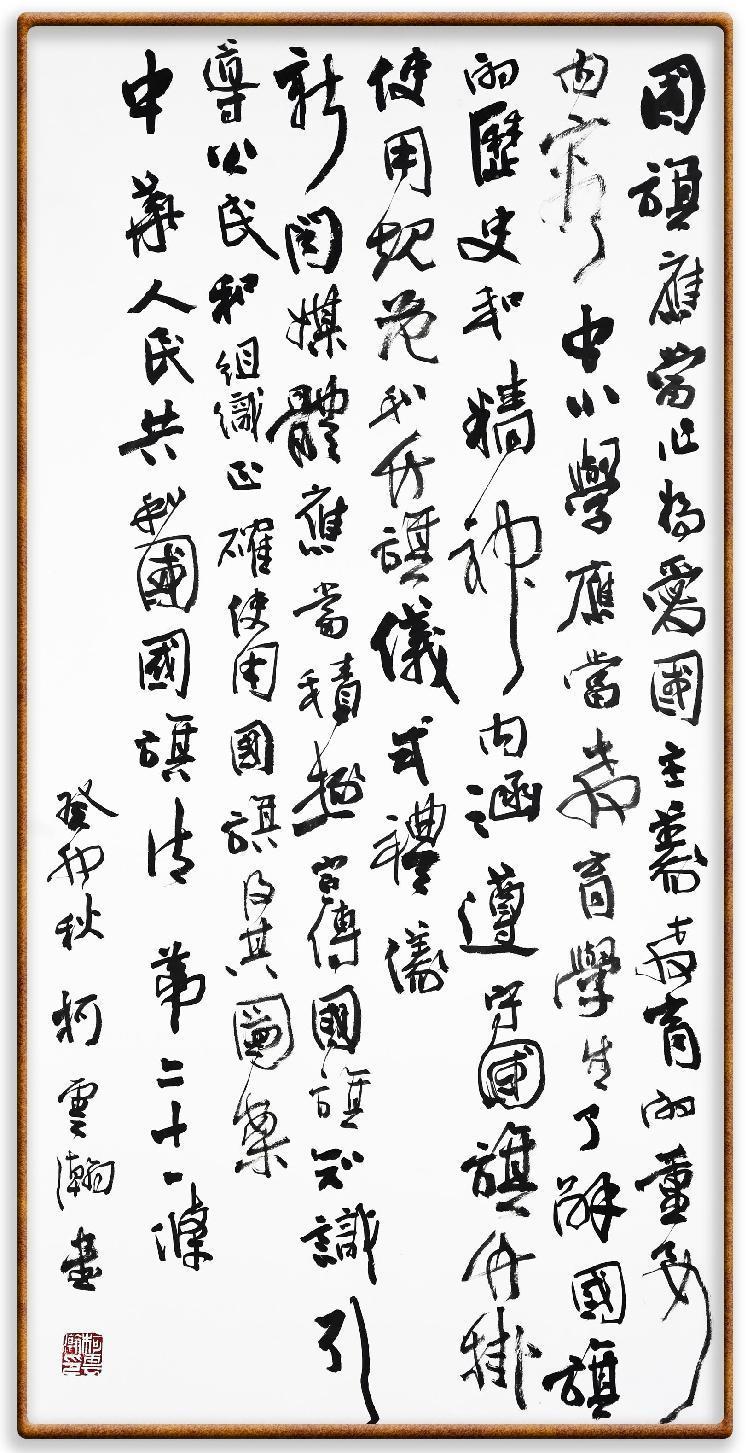 國旗應當作為愛國主義教育的重要
内容中小學應當教育學生了解國旗
的歷史和精神内涵遵守國旗升掛
使用規范和升旗儀式禮儀
新聞媒體應當積極宣傳國旗知識引
導公民和組織正確使用國旗及其圖案
中華人民共和國國旗法 第二十一條
癸卯秋 柯雲瀚書
柯雲瀚印